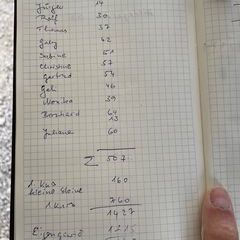 Jürgen 14
Rolf 30
Thomas 37
Gaby 42
Sabine 51
Christine 57
Gertrud 54
Gabi 46
Monika 39
Bernhard 64
13
Juliane 60
Σ 507
1. Kurs 160
kleine Steine
1 Kurs 760
1427
1215